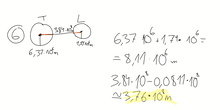 6
T L
3,84·10⁸
6,37·10⁶m
6,37·10⁶+1,74·10⁶=
=8,11·10⁶m
3,84·10⁸-0,0811·10⁸
≅3,76·10⁸m